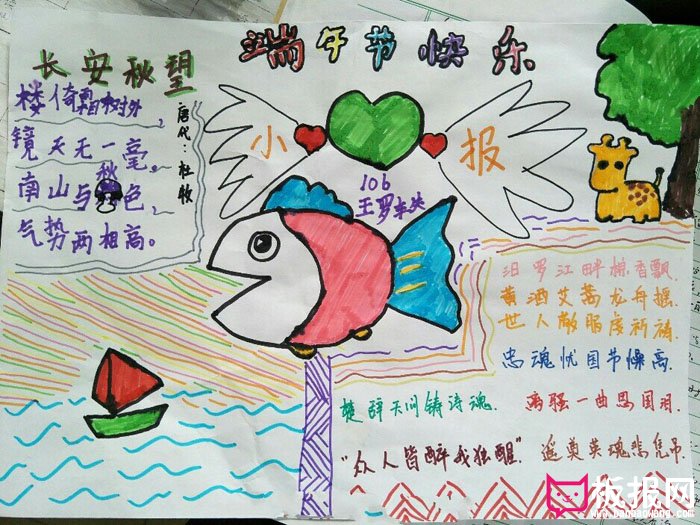 端午节快乐
小报
106
长安秋望
唐代：杜牧
楼倚霜树外，
镜天无一毫。
南山与秋色，
气势两相高。
汨罗江畔棕香飘.
黄酒艾蒿龙舟摇.
世人敞脂虔祈祷.
忠魂忧国节燥高.
楚辞天问铸诗魂.
离骚一曲思国泪.
"众人皆醉我独醒".
遥奠英魂悲凭吊.
板报网
www.banbaowang.com